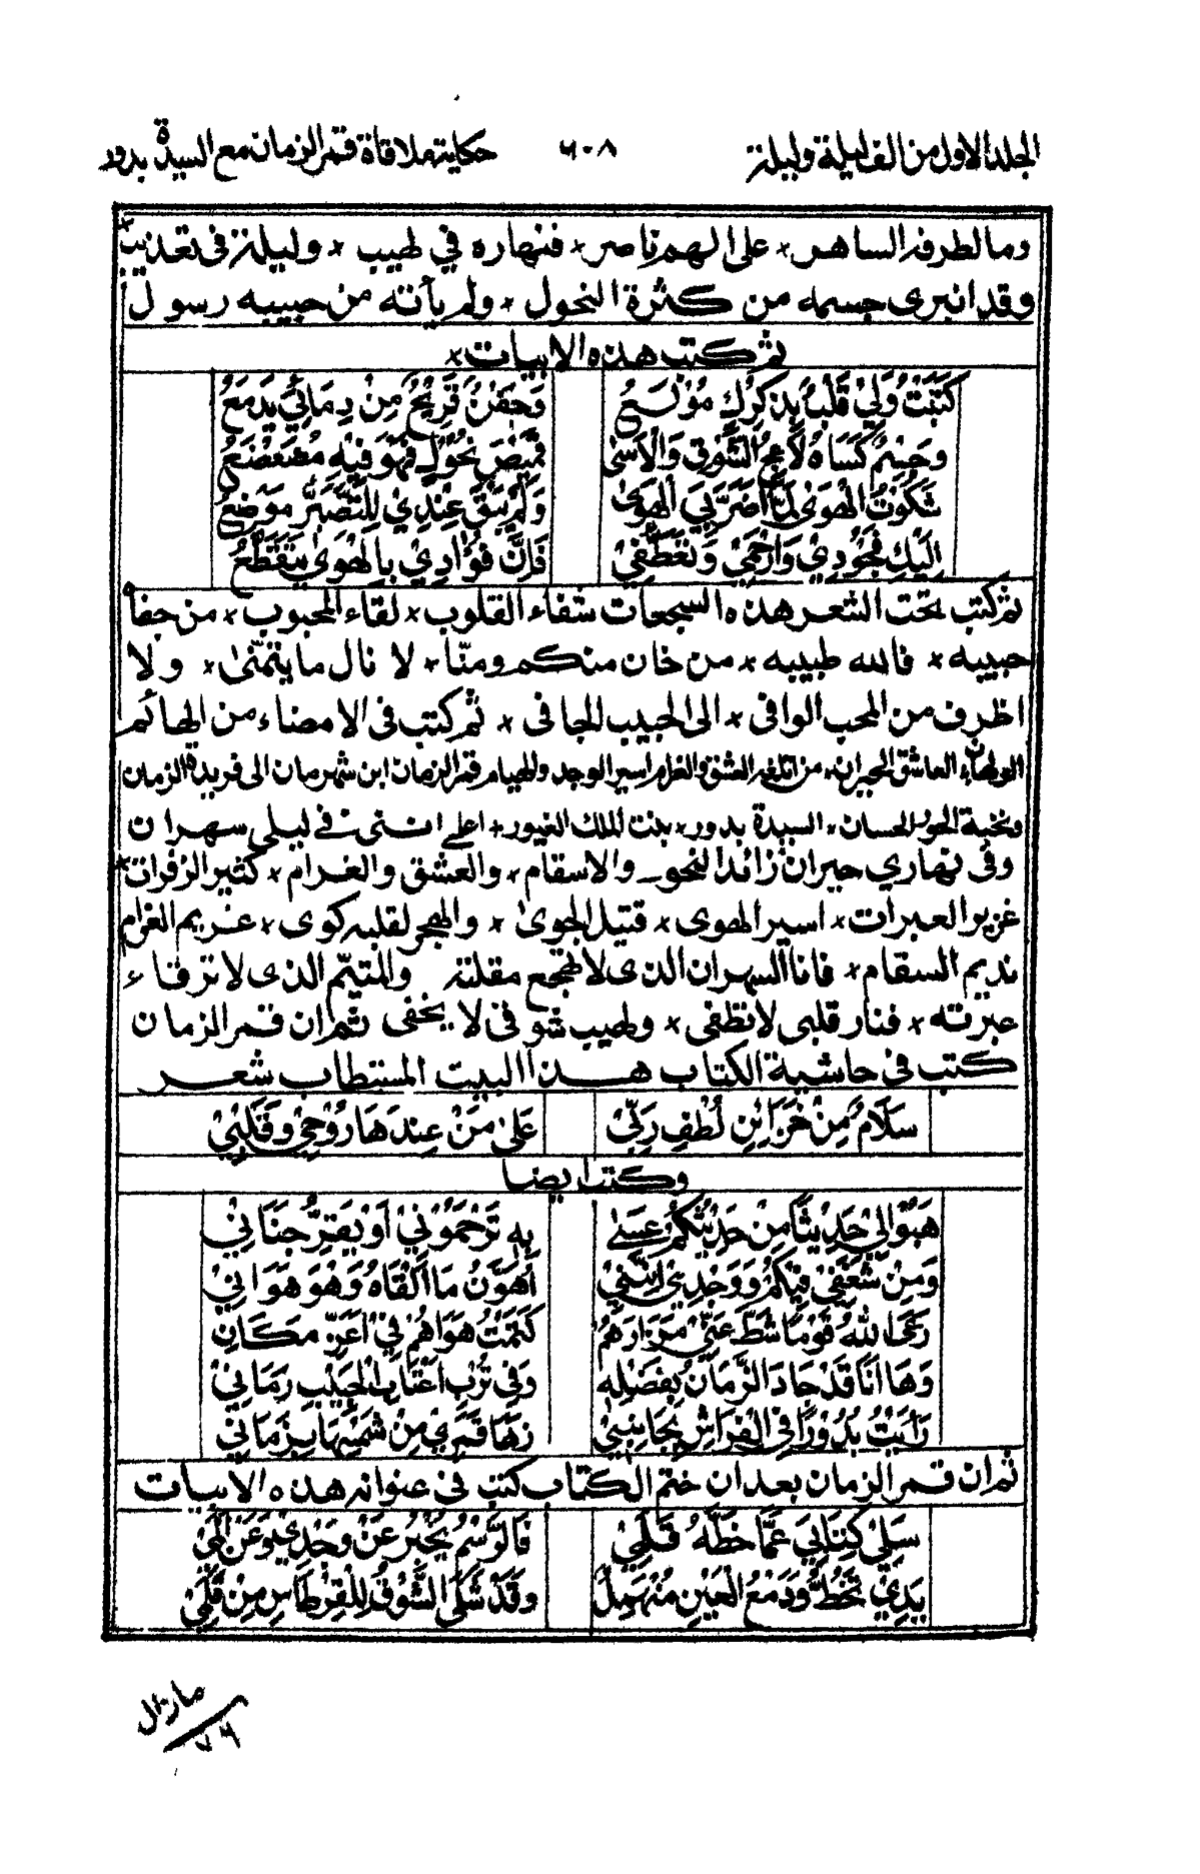 الجلد الاول من الف ليلة وليلة ٦٠٨ حكاية ملاقاة قمر الزمان مع السيدة بدور
وما لطرفه الساهر × على الهم ناصر × فنهاره في لهيب × وليلة فى تعذيب
وقد انبرى جسمه من كثرة النحول × ولم يأته من حبيبه رسول
ثم كتب هذه الابيات ×
كَتَبْتُ وَلِيْ قَلْبٌ بِذِكْرِكِ مُوْلَعٌ وَجَفْنٌ قَرِيْحٌ مِنْ دِمَائِيْ يَدْمَعُ
وَجِسْمٌ كَسَاهُ لَاعِجُ الشَّوْقِ وَالْاَسٰى قَمِيْصَ نُحُوْلٍ فَهُوَ فِيْهِ مُضَعْضَعُ
شَكَوْتُ الْهَوٰى لَمَّا اَضَرَّ بِيَ الْهَوٰى وَلَمْ يَبْقَ عِنْدِيْ لِلتَّصَبُّرِ مَوْضِعُ
اِلَيْكِ فَجُوْدِيْ وَارْحَمِيْ وَتَعَطَّفِيْ فَاِنَّ فُؤَادِيْ بِالْهَوٰى يَتَقَطَّعُ
ثم كتب تحت الشعر هذه السجعات شفاء القلوب × لقاء المحبوب × من جفاه
حبيبه × فالله طبيبه × من خان منكم ومنّا × لا نال ما يتمنّىٰ × ولا
اظرف من المحب الوافى × الى الحبيب الجافى × ثم كتب فى الامضاء من الهائم
الولهان × العاشق الحيران × من اتلفه العشق والغرام اسير الوجد والهيام قمر الزمان ابن شهرمان الى فريدة الزمان
ونخبة الحور الحسان × السيدة بدور × بنت الملك الغيور × اعلمى اننى فى ليلى سهران
وفى نهاري حيران زائد النحول والاسقام × والعشق والغرام × كثير الزفرات ×
غزير العبرات × اسير الهوى × قتيل الجوىٰ × والهجر لقلبه كوى × غريم الغرام
نديم السقام × فانا السهران الذى لا تهجع مقلته والمتيّم الذى لا ترقاء
عبرته × فنار قلبى لا تطفى × ولهيب شوقى لا يخفى ثم ان قمر الزمان
كتب فى حاشية الكتاب هذا البيت المستطاب شعر
سَلَامٌ مِنْ خَزَائِنِ لُطْفِ رَبِّيْ عَلىٰ مَنْ عِنْدَهَا رُوْحِيْ وَقَلْبِيْ
وكتب ايضا
هَبُوْا لِيْ حَدِيْثًا مِنْ حَدِيْثِكُمْ عَسىٰ بِهِ تَرْحَمُوْنِيْ اَوْ يَقِرُّ جَنَانِيْ
وَمِنْ شَغَفِيْ فِيْكُمْ وَوَجْدِيْ اِنَّنِيْ اُهَوِّنُ مَا اَلْقَاهُ وَهْوَ هَوَانِيْ
رَعَى اللهُ قَوْمًا شَطَّ عَنِّيْ مَزَارُهُمْ كَتَمْتُ هَوَاهُمْ فِيْ اَعَزِّ مَكَانِ
وَهَا اَنَا قَدْ جَادَ الزَّمَانُ بِفَضْلِهِ وَفِيْ تُرْبِ اَعْتَابِ الْحَبِيْبِ رَمَانِيْ
رَاَيْتُ بُدُوْرًا فِى الْفِرَاشِ بِجَانِبِيْ زَهَا قَمَرِيْ مِنْ شَمْسِهَا بِزَمَانِيْ
ثم ان قمر الزمان بعد ان ختم الكتاب كتب فى عنوانه هذه الابيات
سَلِيْ كِتَابِيَ عَمَّا خَطَّهُ قَلَمِيْ فَالرَّسْمُ يُخْبِرُ عَنْ وَجْدِيْ وَعَنْ اَلَمِيْ
يَدِيْ تَخُطُّ وَدَمْعُ الْعَيْنِ مُنْهَمِلٌ وَقَدْ شَكَى الشَّوْقُ لِلْقِرْطَاسِ مِنْ قَلَمِيْ
٧٦